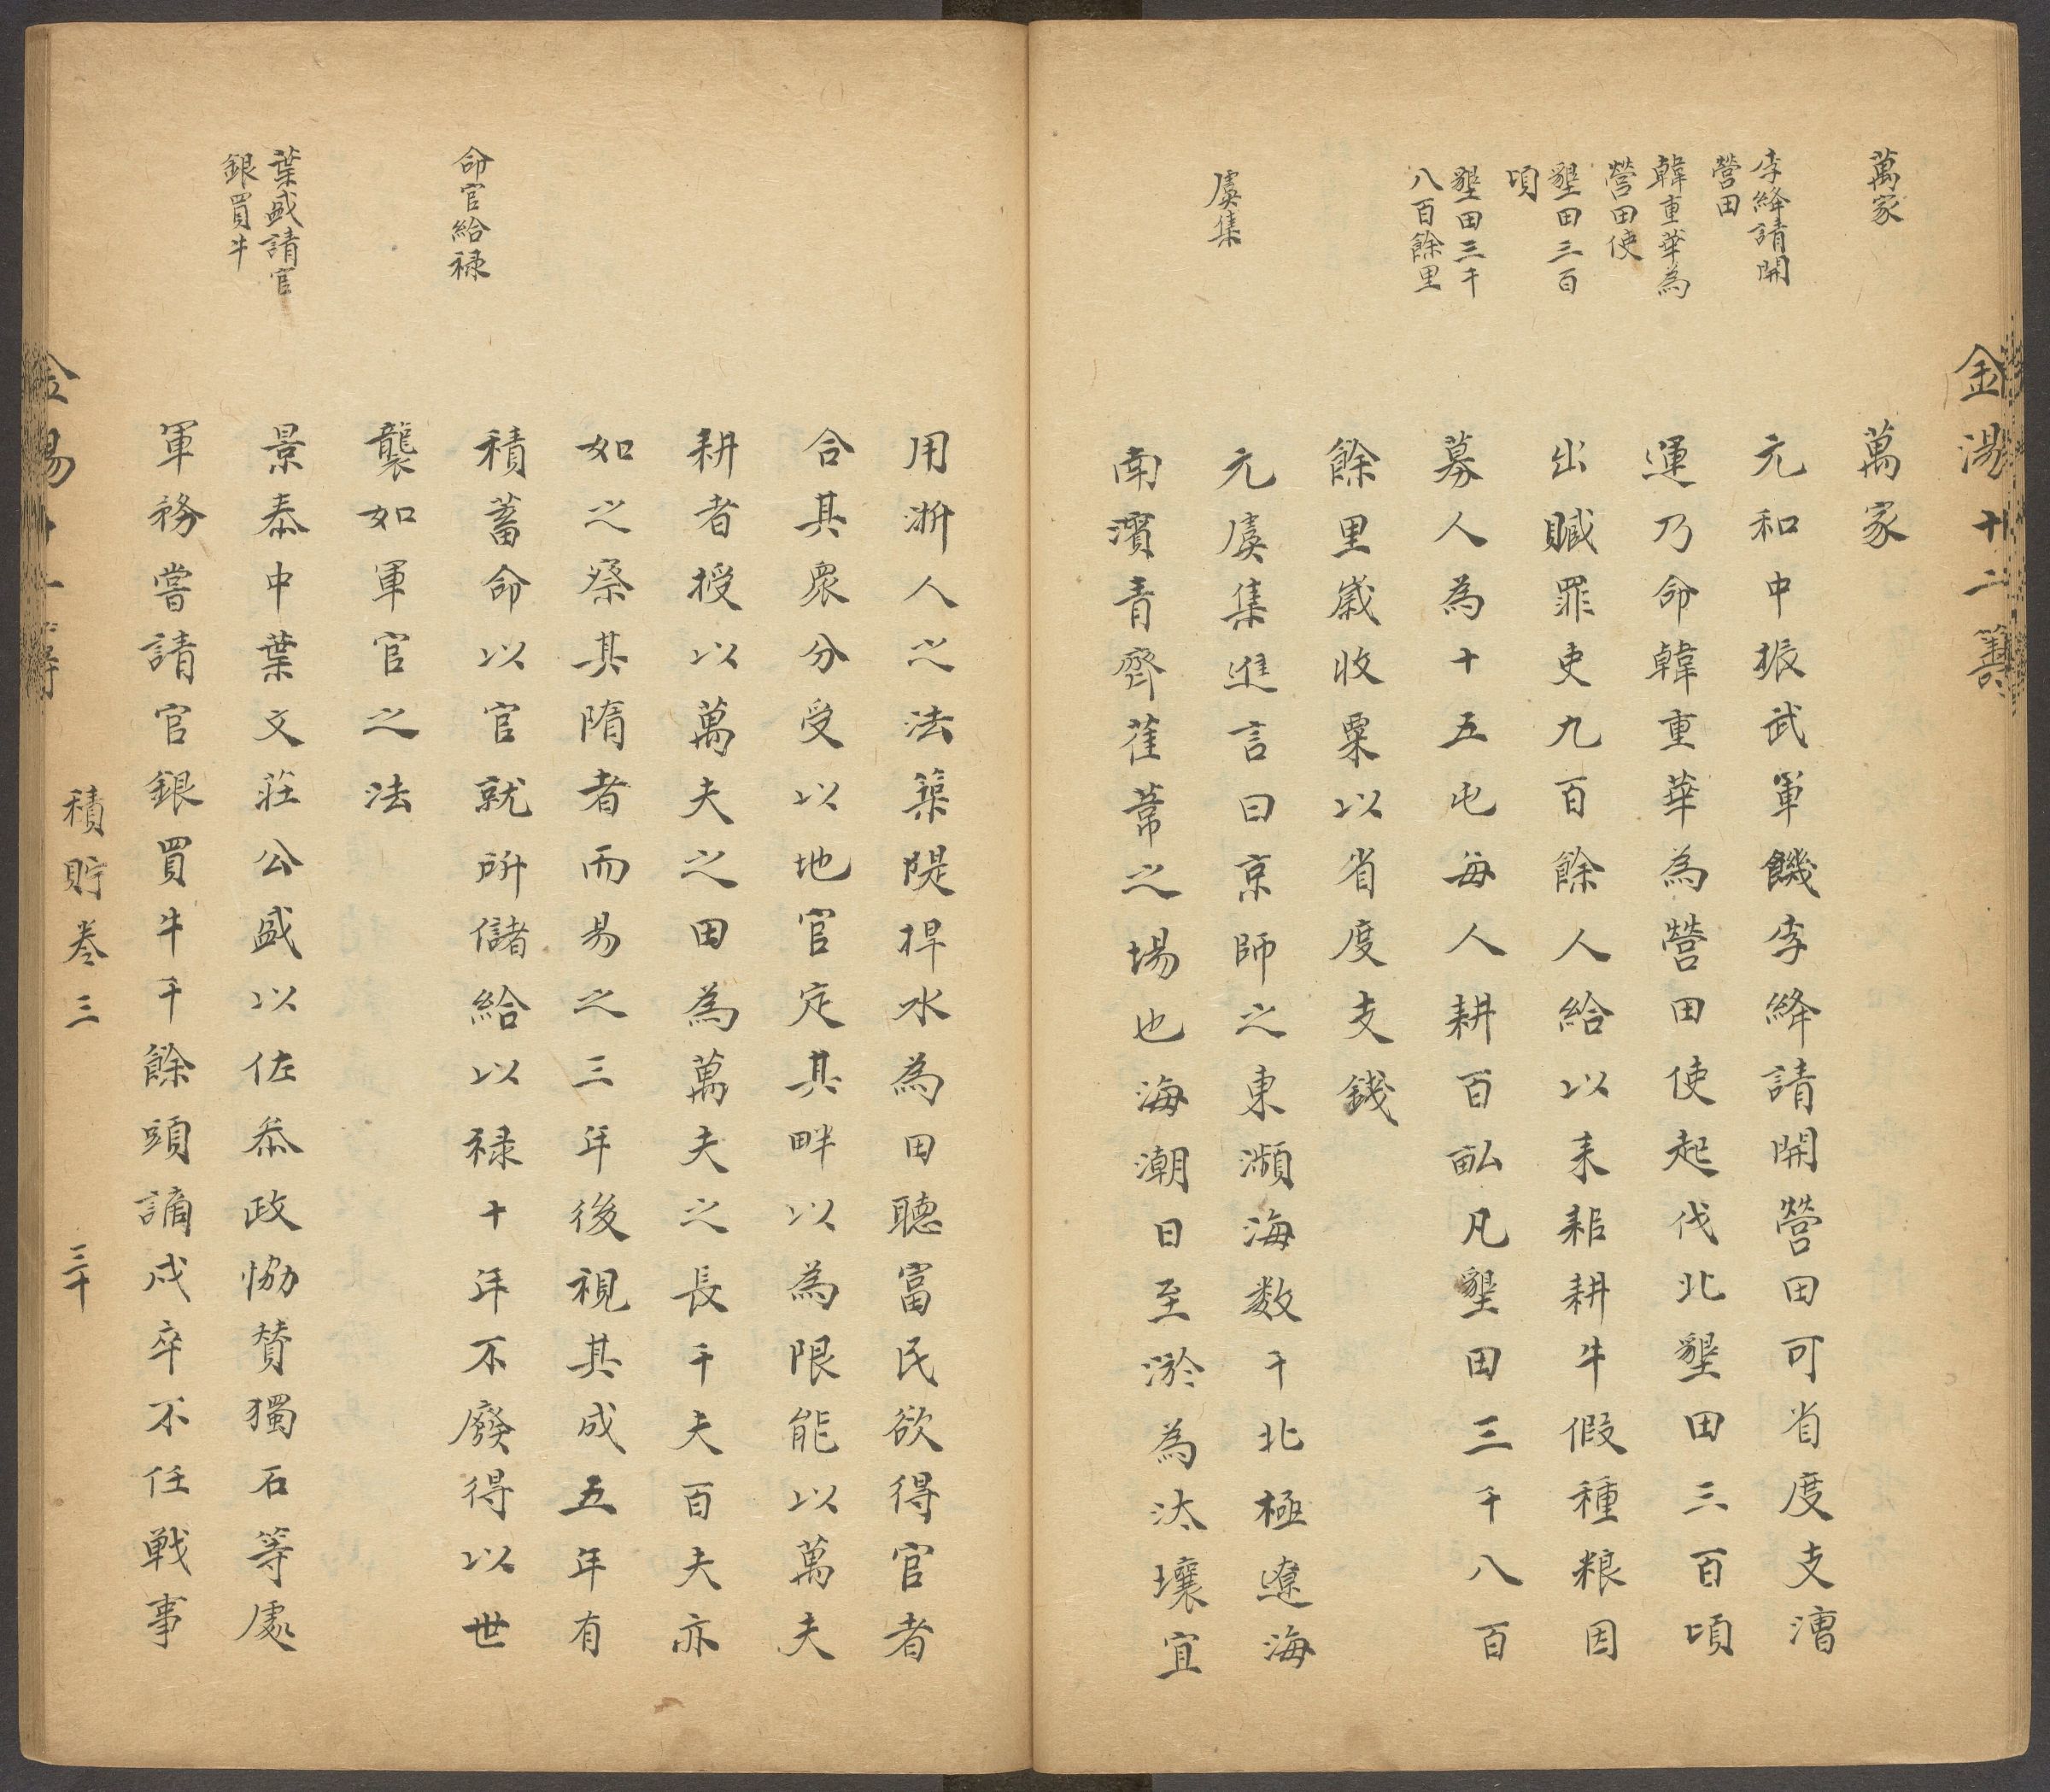 金湯十二籌
萬家
李絳請開
營田
韓重華為
營田使
墾田三百
頃
墾田三千
八百餘里
虞集
萬家
元和中振武軍饑李絳請開營田可省度支漕
運乃命韓重華為營田使起代北墾田三百頃
出贓罪吏九百餘人給以耒耜耕牛假種粮因
募人為十五屯每人耕百畝凡墾田三千八百
餘里歲收粟以省度支錢
元虞集進言曰京師之東瀕海数千北極遼海
南濱青齊萑葦之場也海潮日至淤為沃壤宜
命官給祿
葉盛請官
銀買牛
用浙人之法築隄捍水為田聽富民欲得官者
合其衆分受以地官定其畔以為限能以萬夫
耕者授以萬夫之田為萬夫之長千夫百夫亦
如之察其隋者而易之三年後視其成五年有
積蓄命以官就所儲給以祿十年不廢得以世
襲如軍官之法
景泰中葉文莊公盛以佐叅政協賛獨石等處
軍務嘗請官銀買牛千餘頭謫戍卒不任戰事
積貯卷三 三十